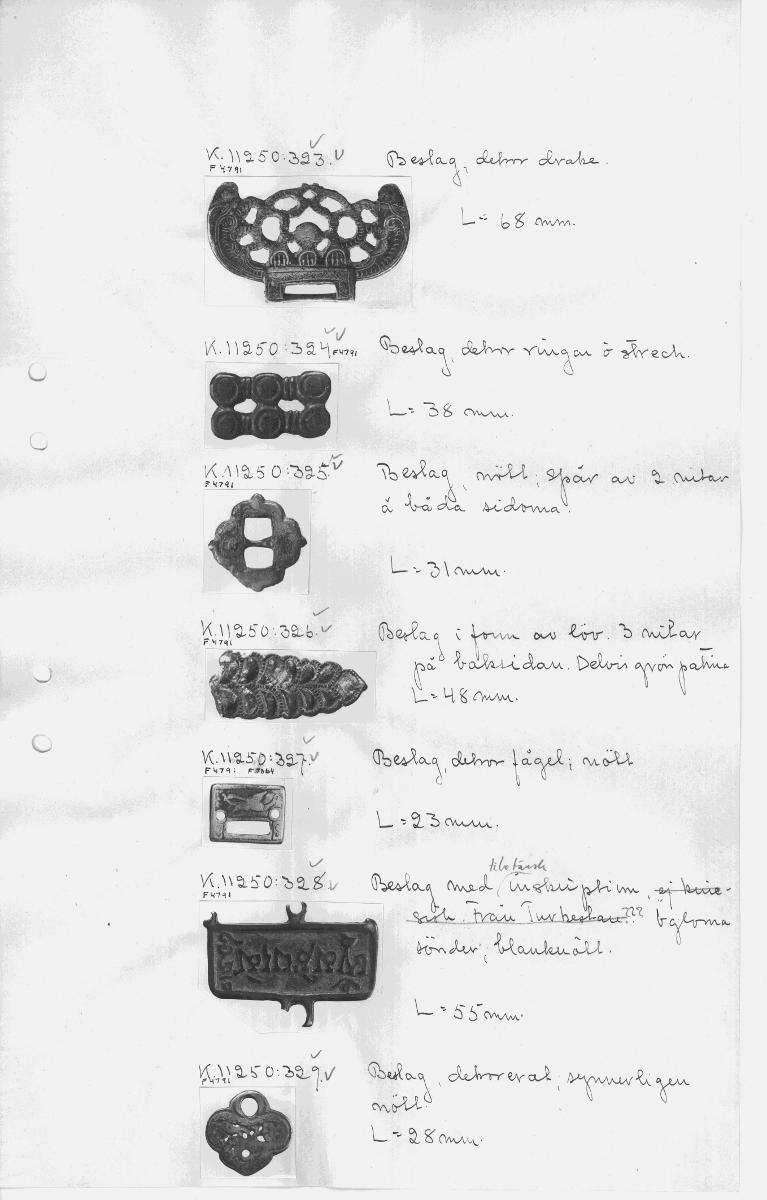 K.11250:323.
F4791
Beslag, dekor drake.
L= 68 mm.
K.11250:324
F4791
Beslag, dekor ringar o streck.
L= 38 mm.
K.11250:325
F4791
Beslag, nött, spår av 2 nitar
å båda sidorna.
L= 31 mm.
K.11250:326.
F4791
Beslag i form av löv. 3 nitar
på baksidan. Delvis grön patina
L= 48 mm.
K.11250:327.
F4791
Beslag, dekor fågel; nött
L= 23 mm.
K.11250:328
F4791
tibetansk
Beslag med inskription, ej kine-
sisk. Från Turkestan??? öglorna
sönder; blanknött.
L= 55 mm.
K.11250:329.
F4791
Beslag, dekorerat, synnerligen
nött.
L= 28 mm.